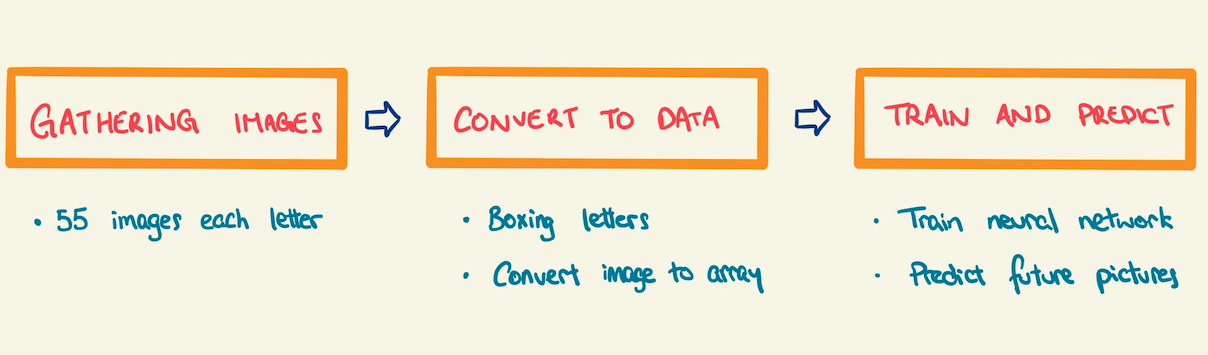 GATHERING IMAGES
• 55 images each letter
CONVERT TO DATA
• Boxing letters
• Convert image to array
TRAIN AND PREDICT
• Train neural network
• Predict future pictures